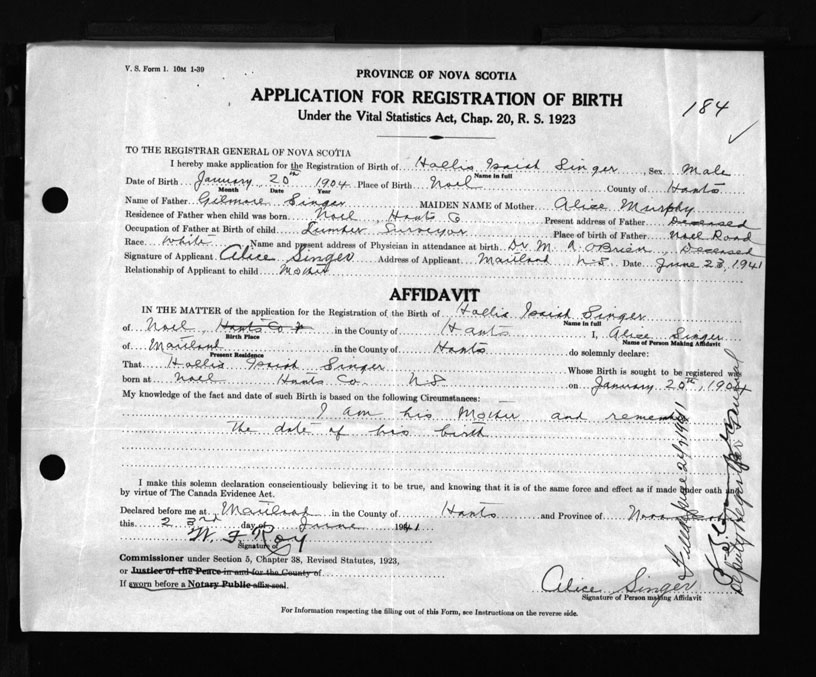 V. S. Form 1. 10M 1-39
PROVINCE OF NOVA SCOTIA
APPLICATION FOR REGISTRATION OF BIRTH
184
Under the Vital Statistics Act, Chap. 20, R. S. 1923
TO THE REGISTRAR GENERAL OF NOVA SCOTIA
I hereby make application for the Registration of Birth of Hollis Isaiah Singer Sex Male
Name in full
Date of Birth January 20th 1904 Place of Birth Noel County of Hants
Month Date Year
Name of Father Gilmore Singer MAIDEN NAME of Mother Alice Murphy
Residence of Father when child was born Noel, Hants Co Present address of Father Deceased
Occupation of Father at Birth of child Lumber Surveyor Place of birth of Father Noel Road
Race White Name and present address of Physician in attendance at birth Dr. M. A. O'Brien, Deceased
Signature of Applicant Alice Singer Address of Applicant Maitland N.S. Date June 23, 1941
Relationship of Applicant to child Mother
AFFIDAVIT
IN THE MATTER of the application for the Registration of the Birth of Hollis Isaiah Singer
Name in full
of Noel, Hants Co in the County of Hants I, Alice Singer
Birth Place Name of Person Making Affidavit
of Maitland in the County of Hants do solemnly declare:
Present Residence
That Hollis Isaiah Singer Whose Birth is sought to be registered was
born at Noel Hants Co. N.S. on January 20th, 1904
My knowledge of the fact and date of such Birth is based on the following Circumstances:
I am his Mother and remember
the date of his birth
I make this solemn declaration conscientiously believing it to be true, and knowing that it is of the same force and effect as if made under oath and
by virtue of The Canada Evidence Act.
Declared before me at Maitland in the County of Hants and Province of Nova Scotia
this 23rd day of June 1941
W. F. Roy
Signature of
Commissioner under Section 5, Chapter 38, Revised Statutes, 1923,
or Justice of the Peace in and for the County of
If sworn before a Notary Public affix seal.
Alice Singer
Signature of Person making Affidavit
For Information respecting the filling out of this Form, see Instructions on the reverse side.
Filed June 24/1941
Deputy Registrar General